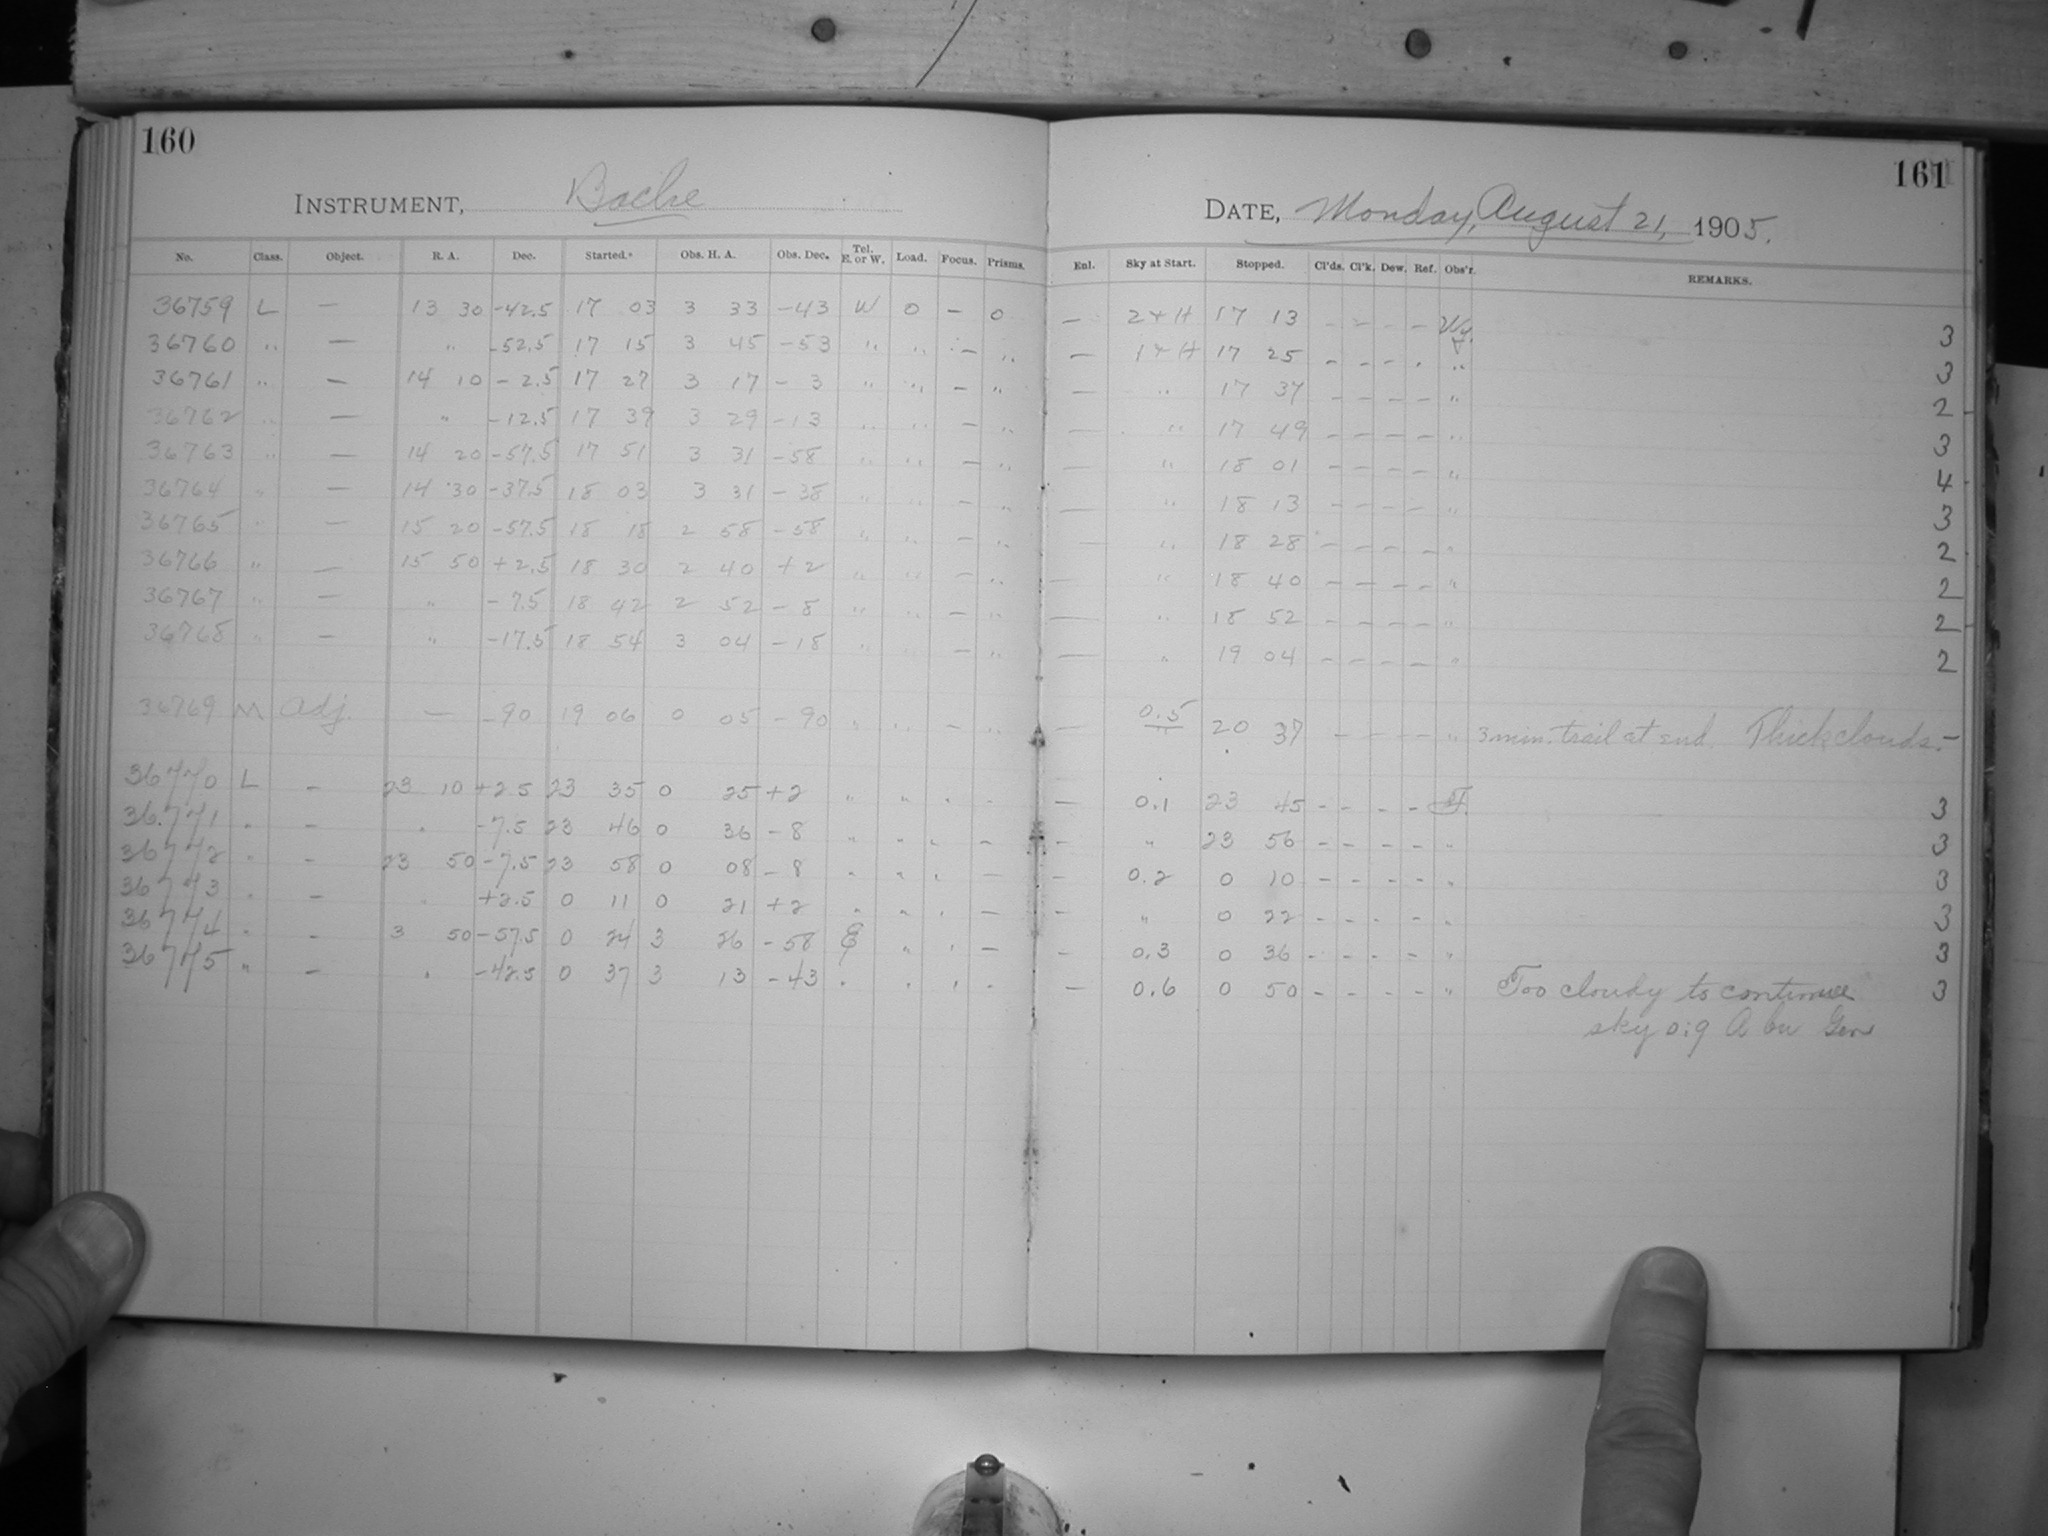 160
161
INSTRUMENT, Bache
DATE, Monday, August 21, 1905.
No. Class. Object. R. A. Dec. Started. Obs. H. A. Obs. Dec. Tel. E. or W. Load. Focus. Prisms. Enl. Sky at Start. Stopped. Cl'ds. Cl'k. Dew. Ref. Obs'r. REMARKS.
36759 L — 13 30 -42.5 17 03 3 33 -43 W 0 — 0 — 2+H 17 13 - - - - Wy. 3
36760 " — " -52.5 17 15 3 45 -53 " " — " — 1+H 17 25 - - - - " 3
36761 " — 14 10 -2.5 17 27 3 17 -3 " " — " — " 17 37 - - - - " 2
36762 " — " -12.5 17 39 3 29 -13 " " — " — " 17 49 - - - - " 3
36763 " — 14 20 -57.5 17 51 3 31 -58 " " — " — " 18 01 - - - - " 4
36764 " — 14 30 -37.5 18 03 3 31 -38 " " — " — " 18 13 - - - - " 3
36765 " — 15 20 -57.5 18 18 2 58 -58 " " — " — " 18 28 - - - - " 2
36766 " — 15 50 +2.5 18 30 2 40 +2 " " — " — " 18 40 - - - - " 2
36767 " — " -7.5 18 42 2 52 -8 " " — " — " 18 52 - - - - " 2
36768 " — " -17.5 18 54 3 04 -18 " " — " — " 19 04 - - - - " 2
36769 M Adj. — -90 19 06 0 05 -90 " " — " — 0.5 20 37 - - - - " 3 min. trail at end. Thick clouds. -
36770 L — 23 10 +2.5 23 35 0 25 +2 " " " - — 0.1 23 45 - - - - F. 3
36771 " — " -7.5 23 46 0 36 -8 " " " - — " 23 56 - - - - " 3
36772 " — 23 50 -7.5 23 58 0 08 -8 " " " - — 0.2 0 10 - - - - " 3
36773 " — " +2.5 0 11 0 21 +2 " " " - — " 0 22 - - - - " 3
36774 " — 3 50 -57.5 0 24 3 26 -58 E " " - — 0.3 0 36 - - - - " 3
36775 " — " -42.5 0 37 3 13 -43 " " " - — 0.6 0 50 - - - - " Too cloudy to continue 3
sky 0.9